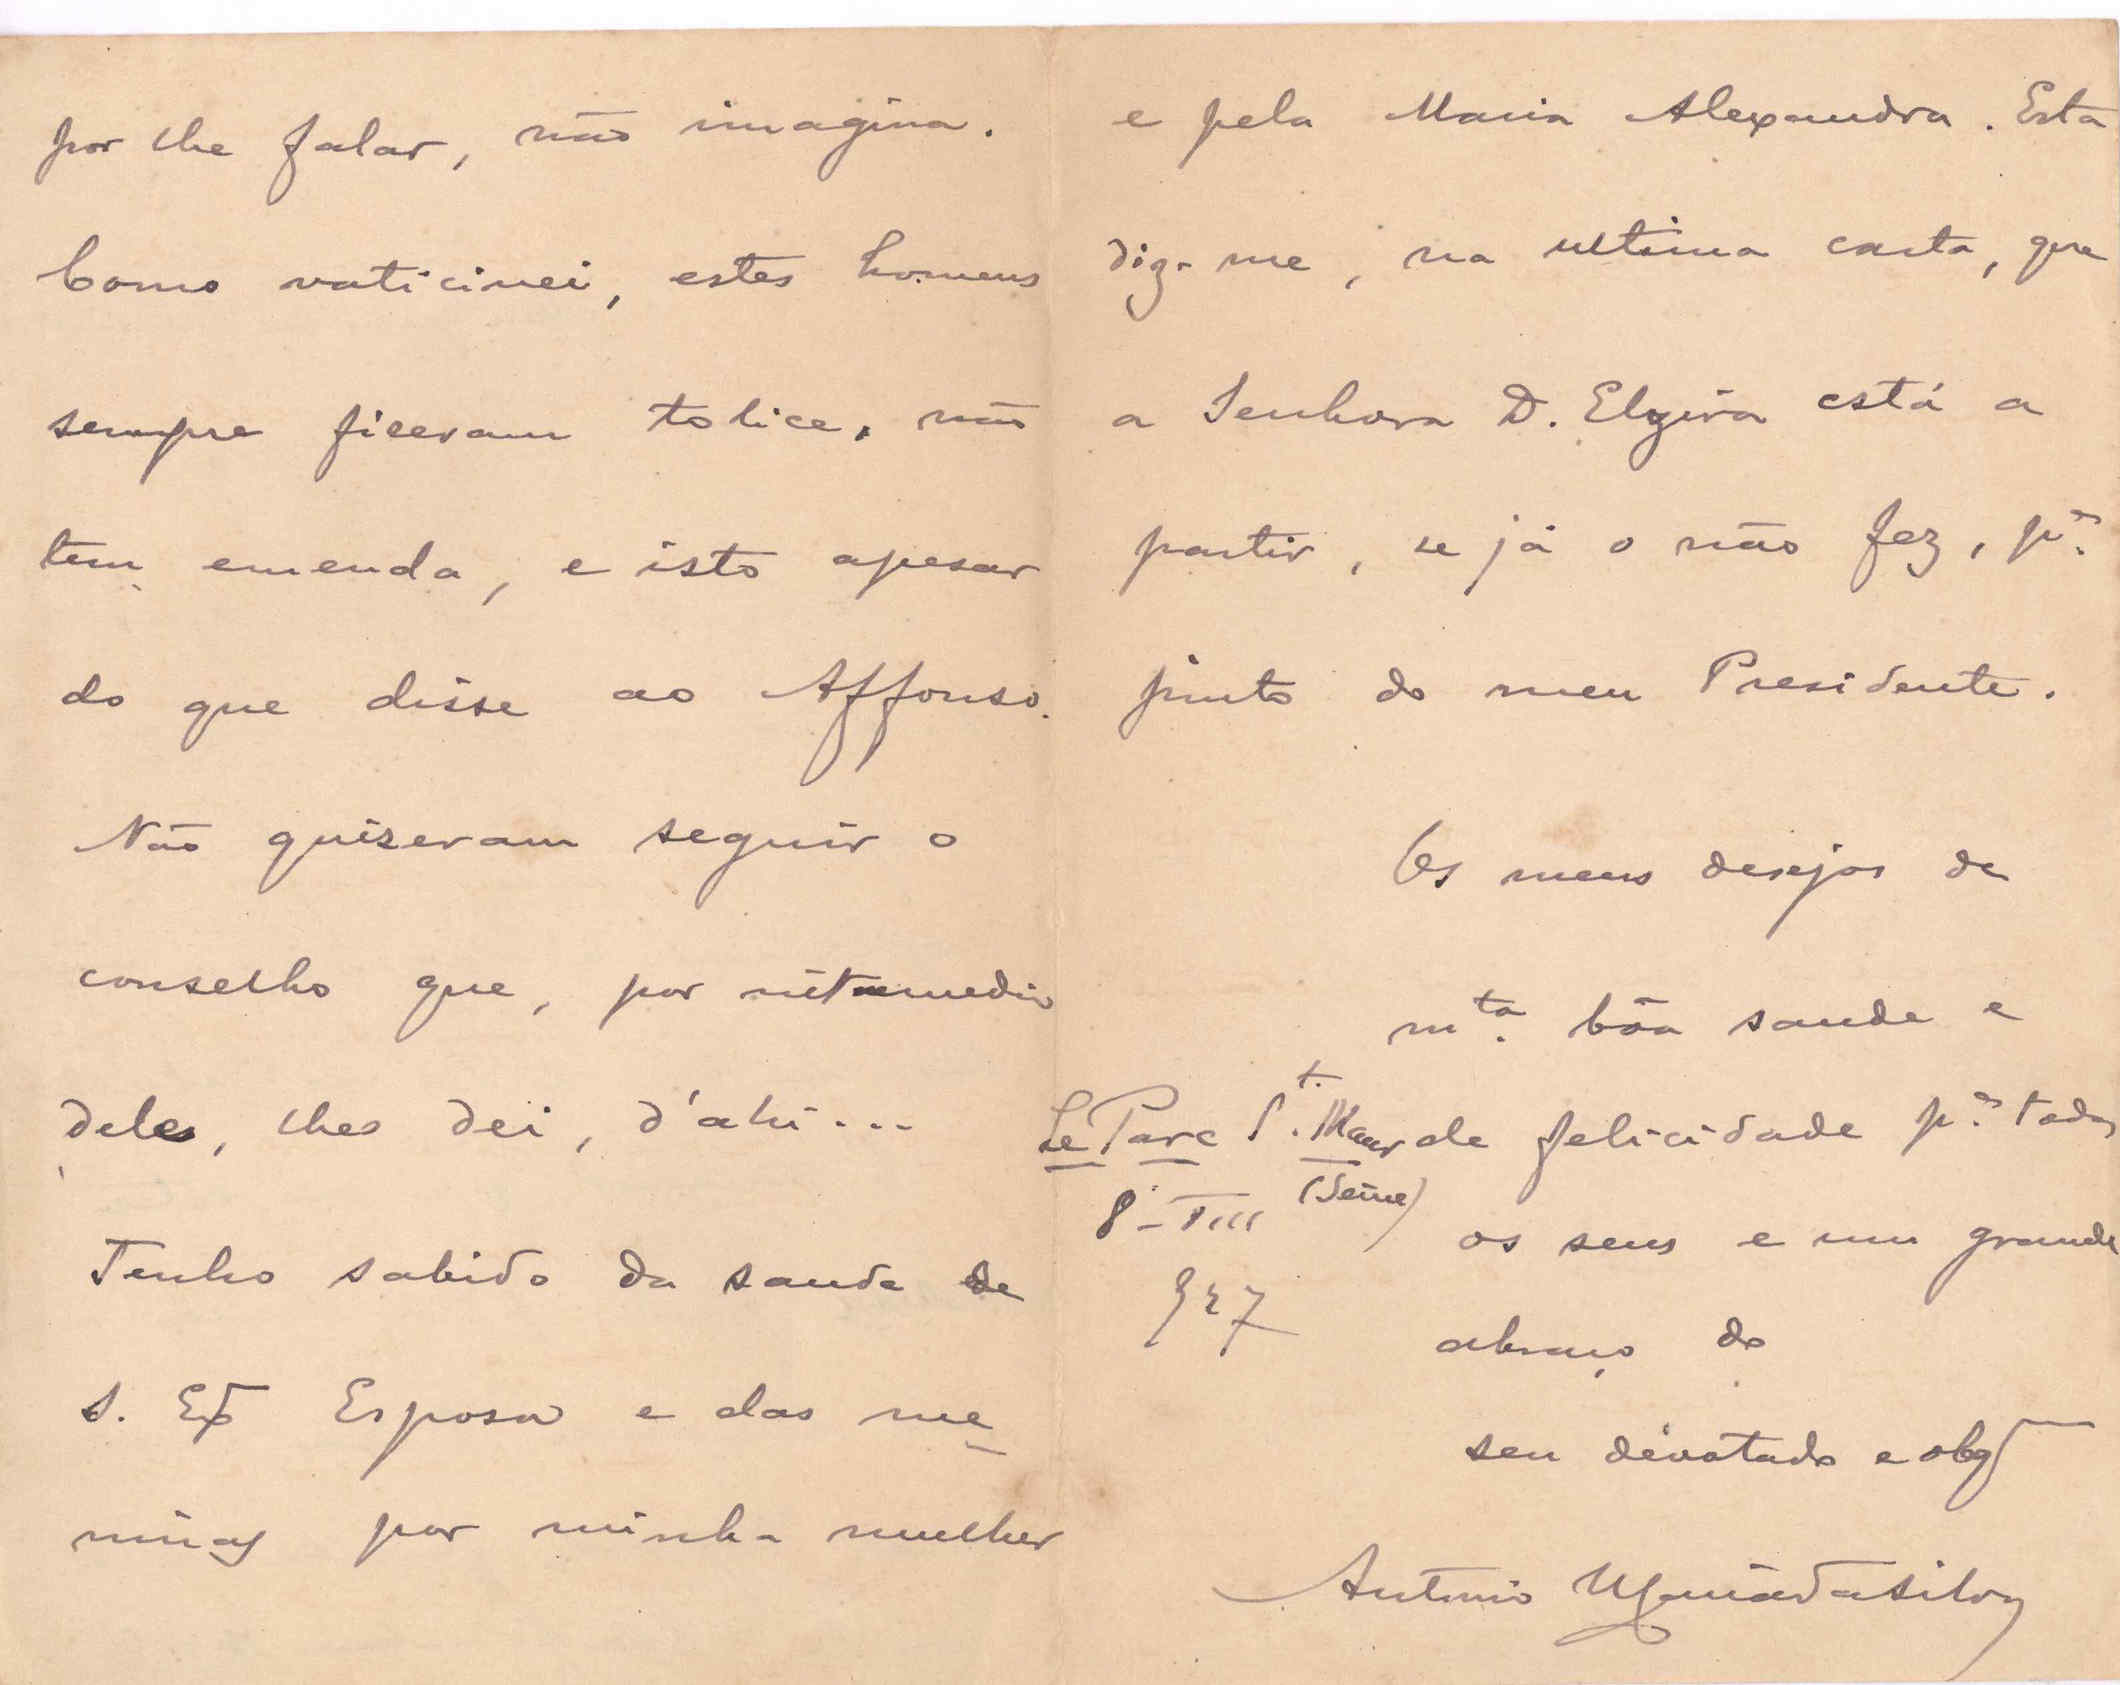 por lhe falar, não imagina.
Como vaticinei, estes homens
sempre fizeram tolice, não
tem emenda, e isto apesar
do que disse ao Affonso.
Não quizeram seguir o
conselho que, por intermedio
deles, lhes dei, d'ahi...
Tenho sabido da saude de
S. Exª Esposa e das me-
ninas por minha mulher
e pela Maria Alexandra. Esta
diz-me, na ultima carta, que
a Senhora D. Elzira está a
partir, se já o não fez, pª.
junto do meu Presidente.
Os meus desejos de
mta. bôa saude e
de felicidade pª. todos
os seus e um grande
abraço do
seu devotado e obgº
Antonio Maria da Silva
Le Parc St. Maur
(Seine)
8-VIII
927